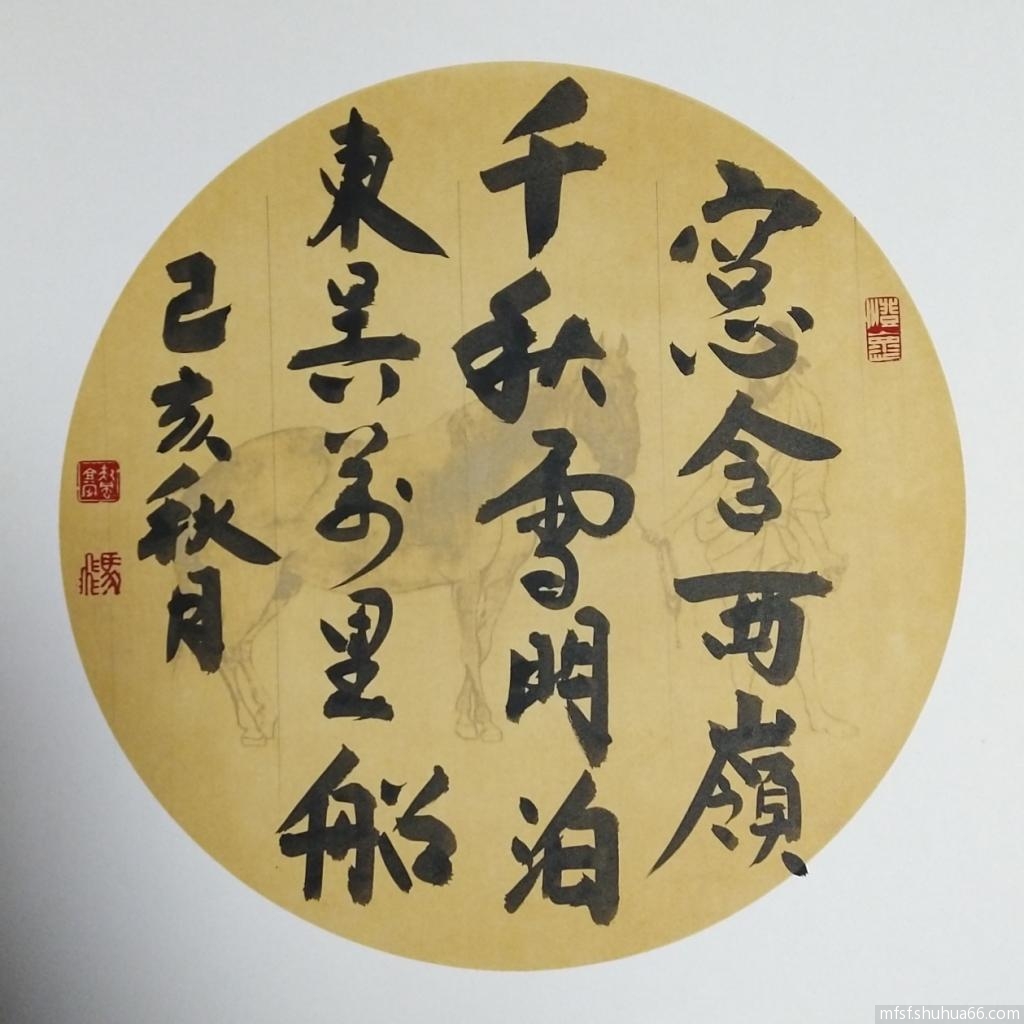 窻含西嶺
千秋雪門泊
東吳萬里船
己亥秋月
mfsf.shuhua66.com